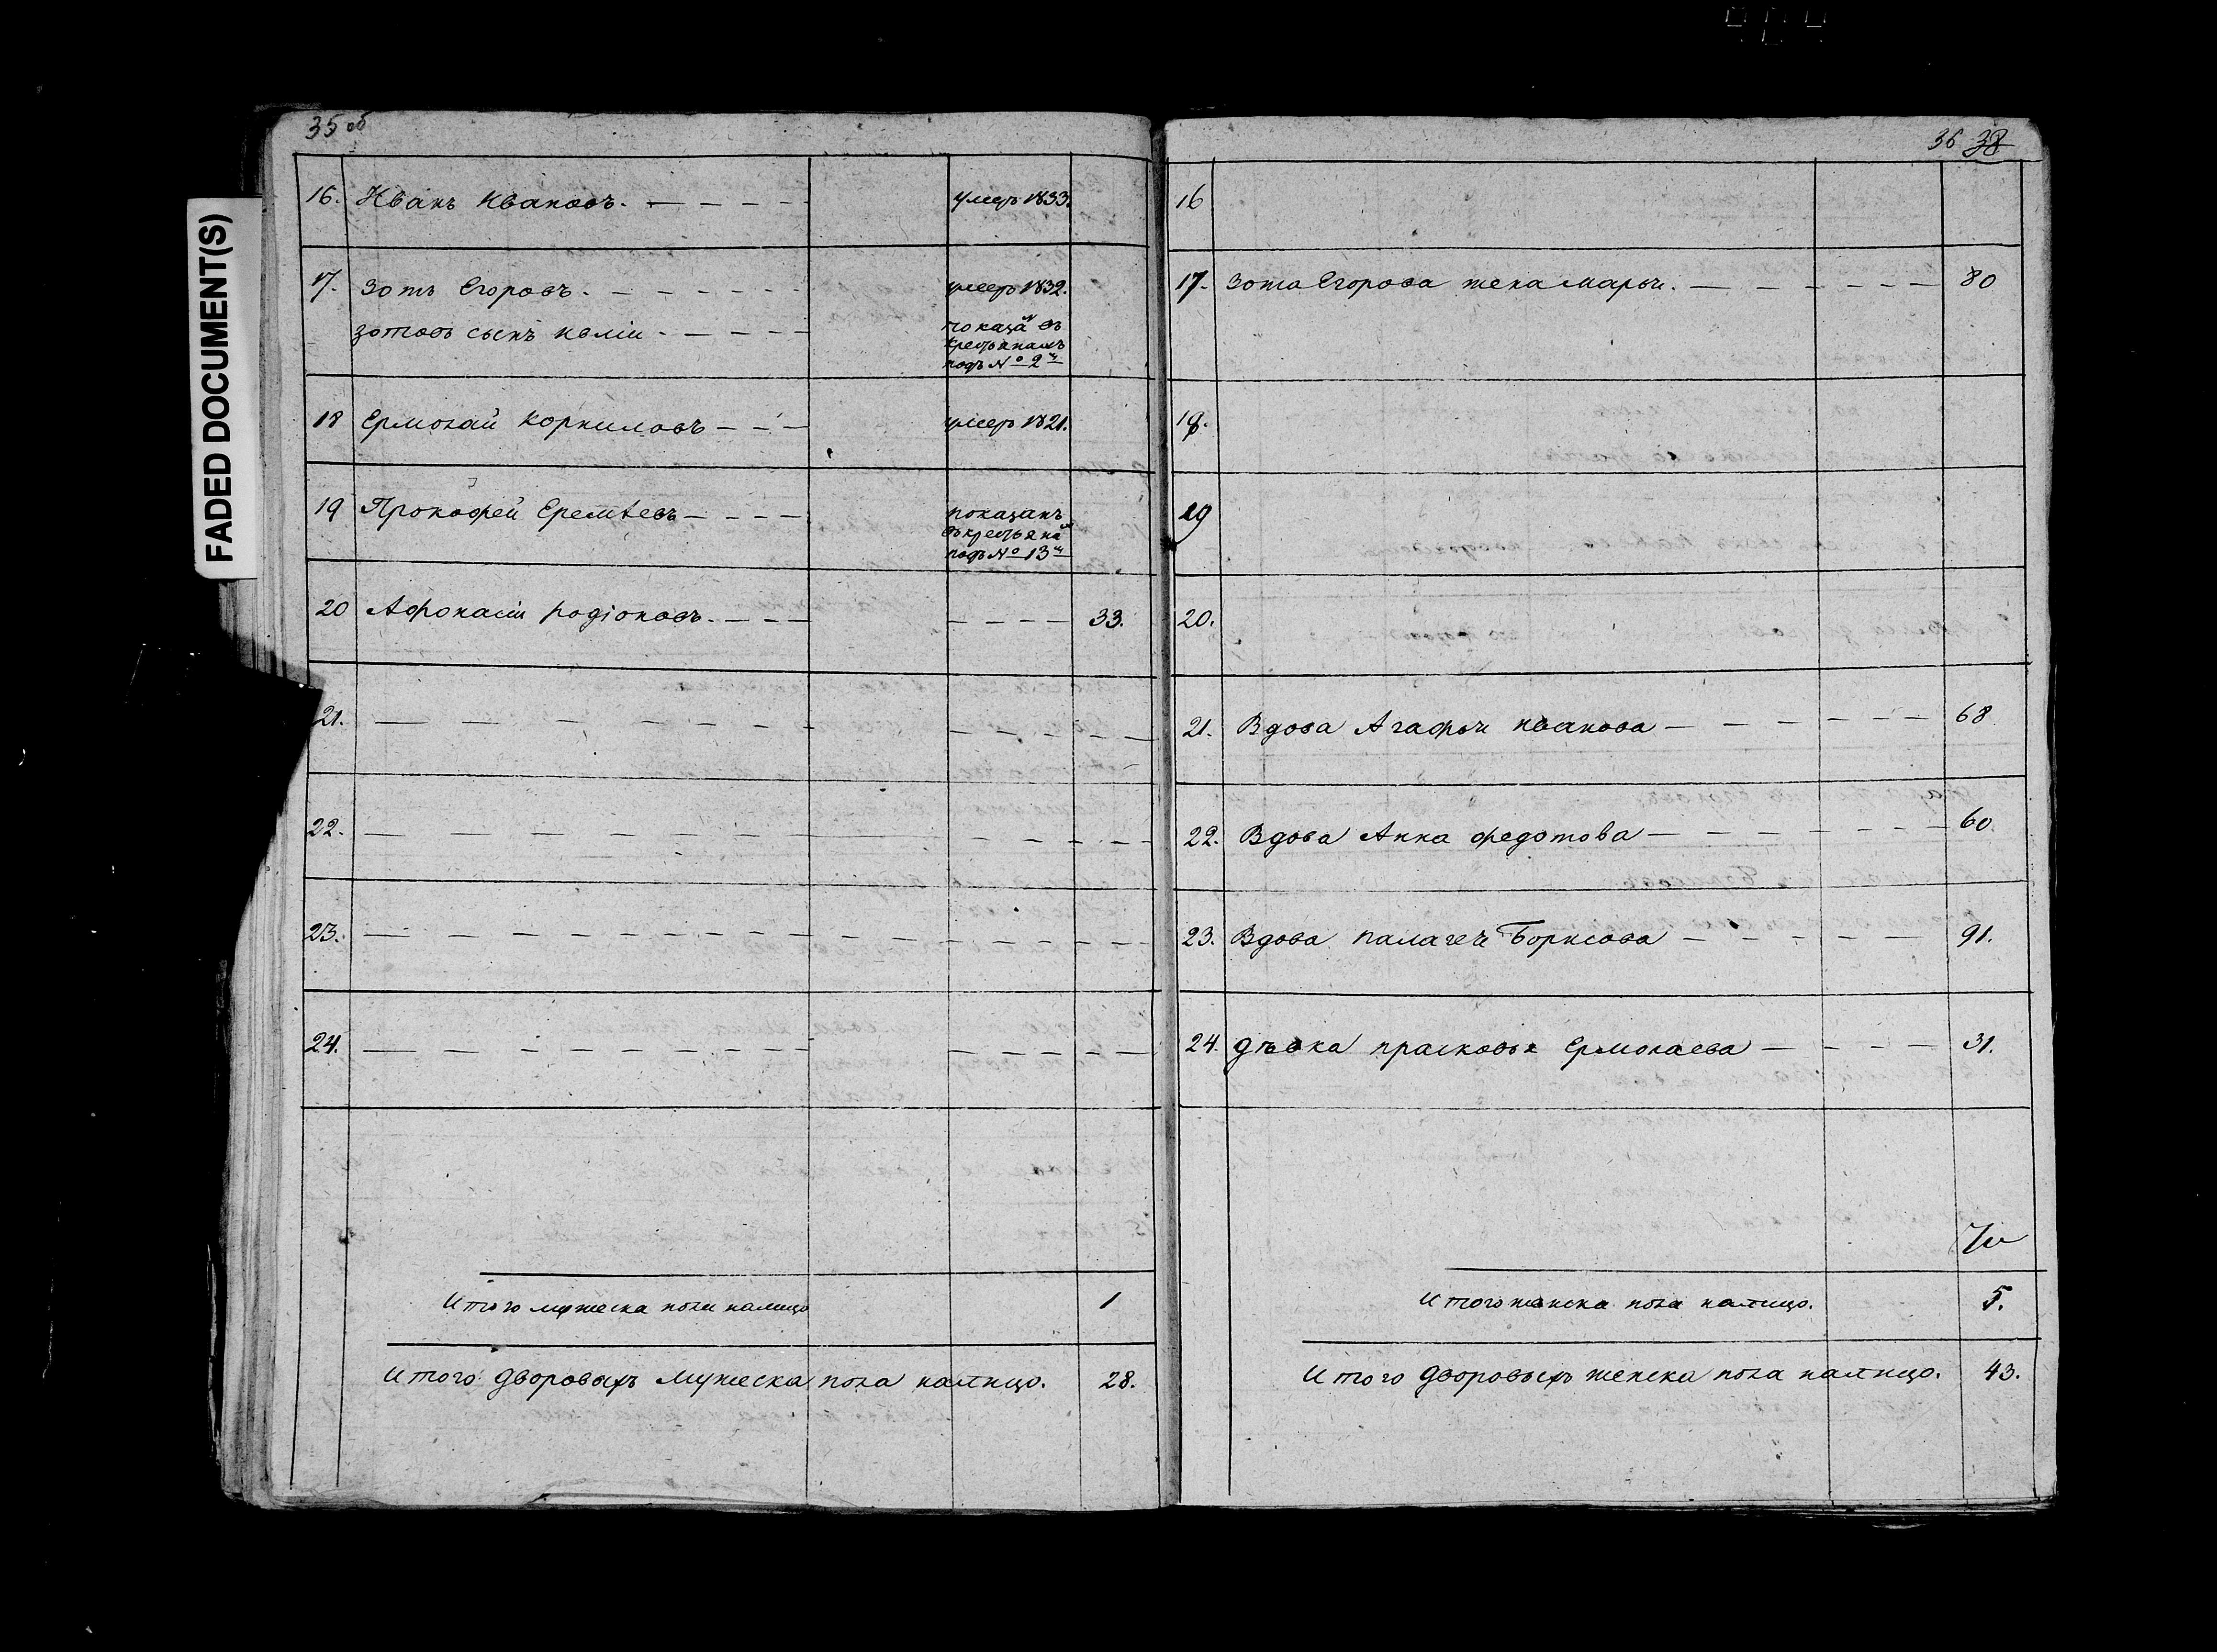 35 об
16. Иванъ Ивановъ. умеръ 1833.
17. Зотъ Егоровъ. умеръ 1832.
зотовъ сынъ
показан въ
крестьянахъ
подъ № 2й
18 Ермолай Корниловъ умеръ 1821.
19 Прокофей Еремѣевъ показанъ
въ крестьянах
подъ № 13й
20 Афонасiй родiоновъ. 33.
21.
22.
23.
24.
Итого мужеска пола налицо 1
Итого дворовыхъ мужеска пола налицо. 28.
FADED DOCUMENT(S)
36 38
16
17. Зота Егорова жена марья. 80
18.
19
20.
21. Вдова Агафья иванова 68
22. Вдова Анна федотова 60
23. Вдова палагея Борисова 91.
24. дѣвка прасковья Ермолаева 31.
Итого женска пола налицо. 5.
Итого дворовыхъ женска пола налицо. 43.